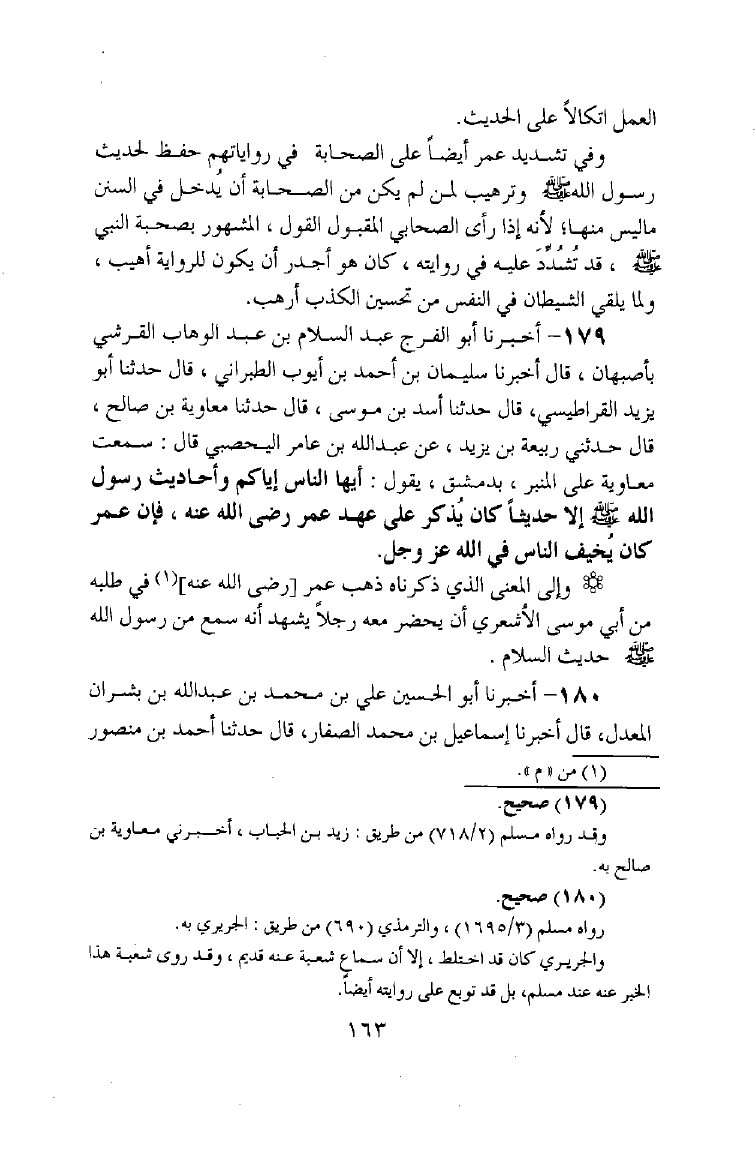 العمل اتكالاً على الحديث.
وفي تشديد عمر أيضاً على الصحابة في رواياتهم حفظ لحديث
رسول الله ﷺ وترهيب لمن لم يكن من الصحابة أن يُدخل في السنن
ماليس منها؛ لأنه إذا رأى الصحابي المقبول القول ، المشهور بصحبة النبي
ﷺ ، قد تُشُدِّدَ عليه في روايته ، كان هو أجدر أن يكون للرواية أهيب ،
ولما يلقي الشيطان في النفس من تحسين الكذب أرهب.
١٧٩- أخبرنا أبو الفرج عبد السلام بن عبد الوهاب القرشي
بأصبهان ، قال أخبرنا سليمان بن أحمد بن أيوب الطبراني ، قال حدثنا أبو
يزيد القراطيسي، قال حدثنا أسد بن موسى ، قال حدثنا معاوية بن صالح ،
قال حدثني ربيعة بن يزيد ، عن عبدالله بن عامر اليحصبي قال : سمعت
معاوية على المنبر ، بدمشق ، يقول : أيها الناس إياكم وأحاديث رسول
الله ﷺ إلا حديثاً كان يُذكر على عهد عمر رضى الله عنه ، فإن عمر
كان يُخيف الناس في الله عز وجل.
وإلى المعنى الذي ذكرناه ذهب عمر [رضى الله عنه](١) في طلبه
من أبي موسى الأشعري أن يحضر معه رجلاً يشهد أنه سمع من رسول الله
ﷺ حديث السلام .
١٨٠- أخبرنا أبو الحسين علي بن محمد بن عبدالله بن بشران
المعدل، قال أخبرنا إسماعيل بن محمد الصفار، قال حدثنا أحمد بن منصور
(١) من «م».
(١٧٩) صحيح.
وقد رواه مسلم (٧١٨/٢) من طريق : زيد بن الحباب ، أخبرني معاوية بن
صالح به.
(١٨٠) صحيح.
رواه مسلم (١٦٩٥/٣) ، والترمذي (٦٩٠) من طريق : الجريري به.
والجريري كان قد اختلط ، إلا أن سماع شعبة عنه قديم ، وقد روى شعبة هذا
الخبر عنه عند مسلم، بل قد توبع على روايته أيضاً.
١٦٣